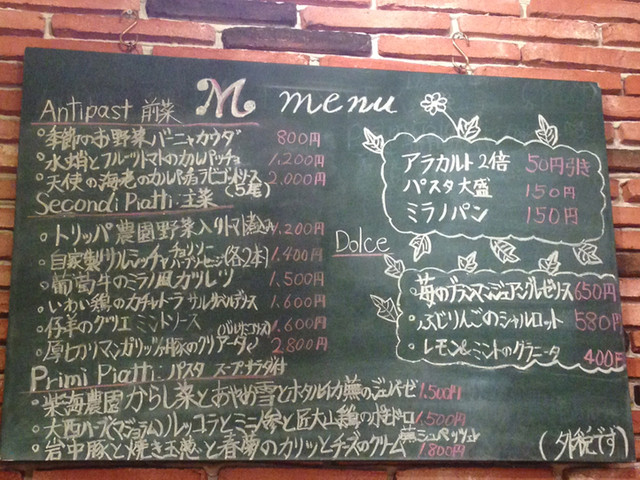 M menu
Antipast 前菜
季節のお野菜バーニャカウダ 800円
水蛸とフルーツトマトのカルパッチョ 1,200円
天使の海老のカルパッチョラビゴットソース (5尾) 2,000円
Secondi Piatti: 主菜
トリッパ農園野菜入りトマト煮込み 1,200円
自家製サルシッチャ (各2本) 1,400円
葡萄牛のミラノ風カツレツ 1,500円
いわい鶏のカチャトーラ 1,600円
仔羊の ミントソース 1,600円
厚切り 2,800円
Primi Piatti: パスタ スープ サラダ付
柴海農園 からし菜とあやめ雪とホタルイカ 1,500円
大西ハーブ(マジョラム)ルッコラとミニ人参と匠大山鶏のポモドーロ 1,500円
岩中豚と焼き玉葱と春菊のカリッとチーズのクリーム 1,800円
アラカルト2倍 50円引き
パスタ大盛 150円
ミラノパン 150円
Dolce
苺のブランマンジェ 650円
ふじりんごのシャルロット 580円
レモン&ミントのグラニータ 400円
(外税です)